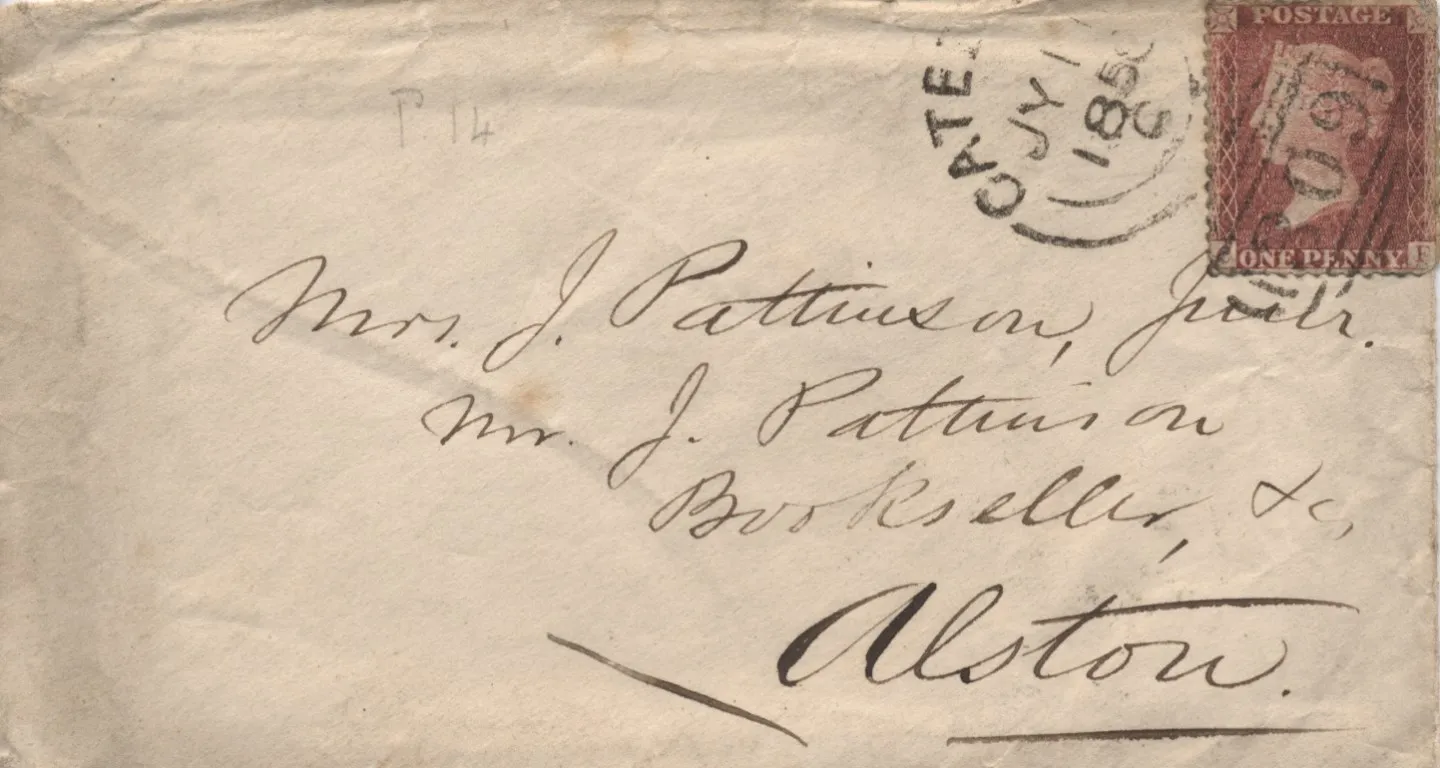 POSTAGE
CATE
JY 1
185
6
ONE PENNY.
P. 14
Mrs. J. Pattinson, Junr.
Mr. J. Pattinson
Bookseller, &c,
Alston.